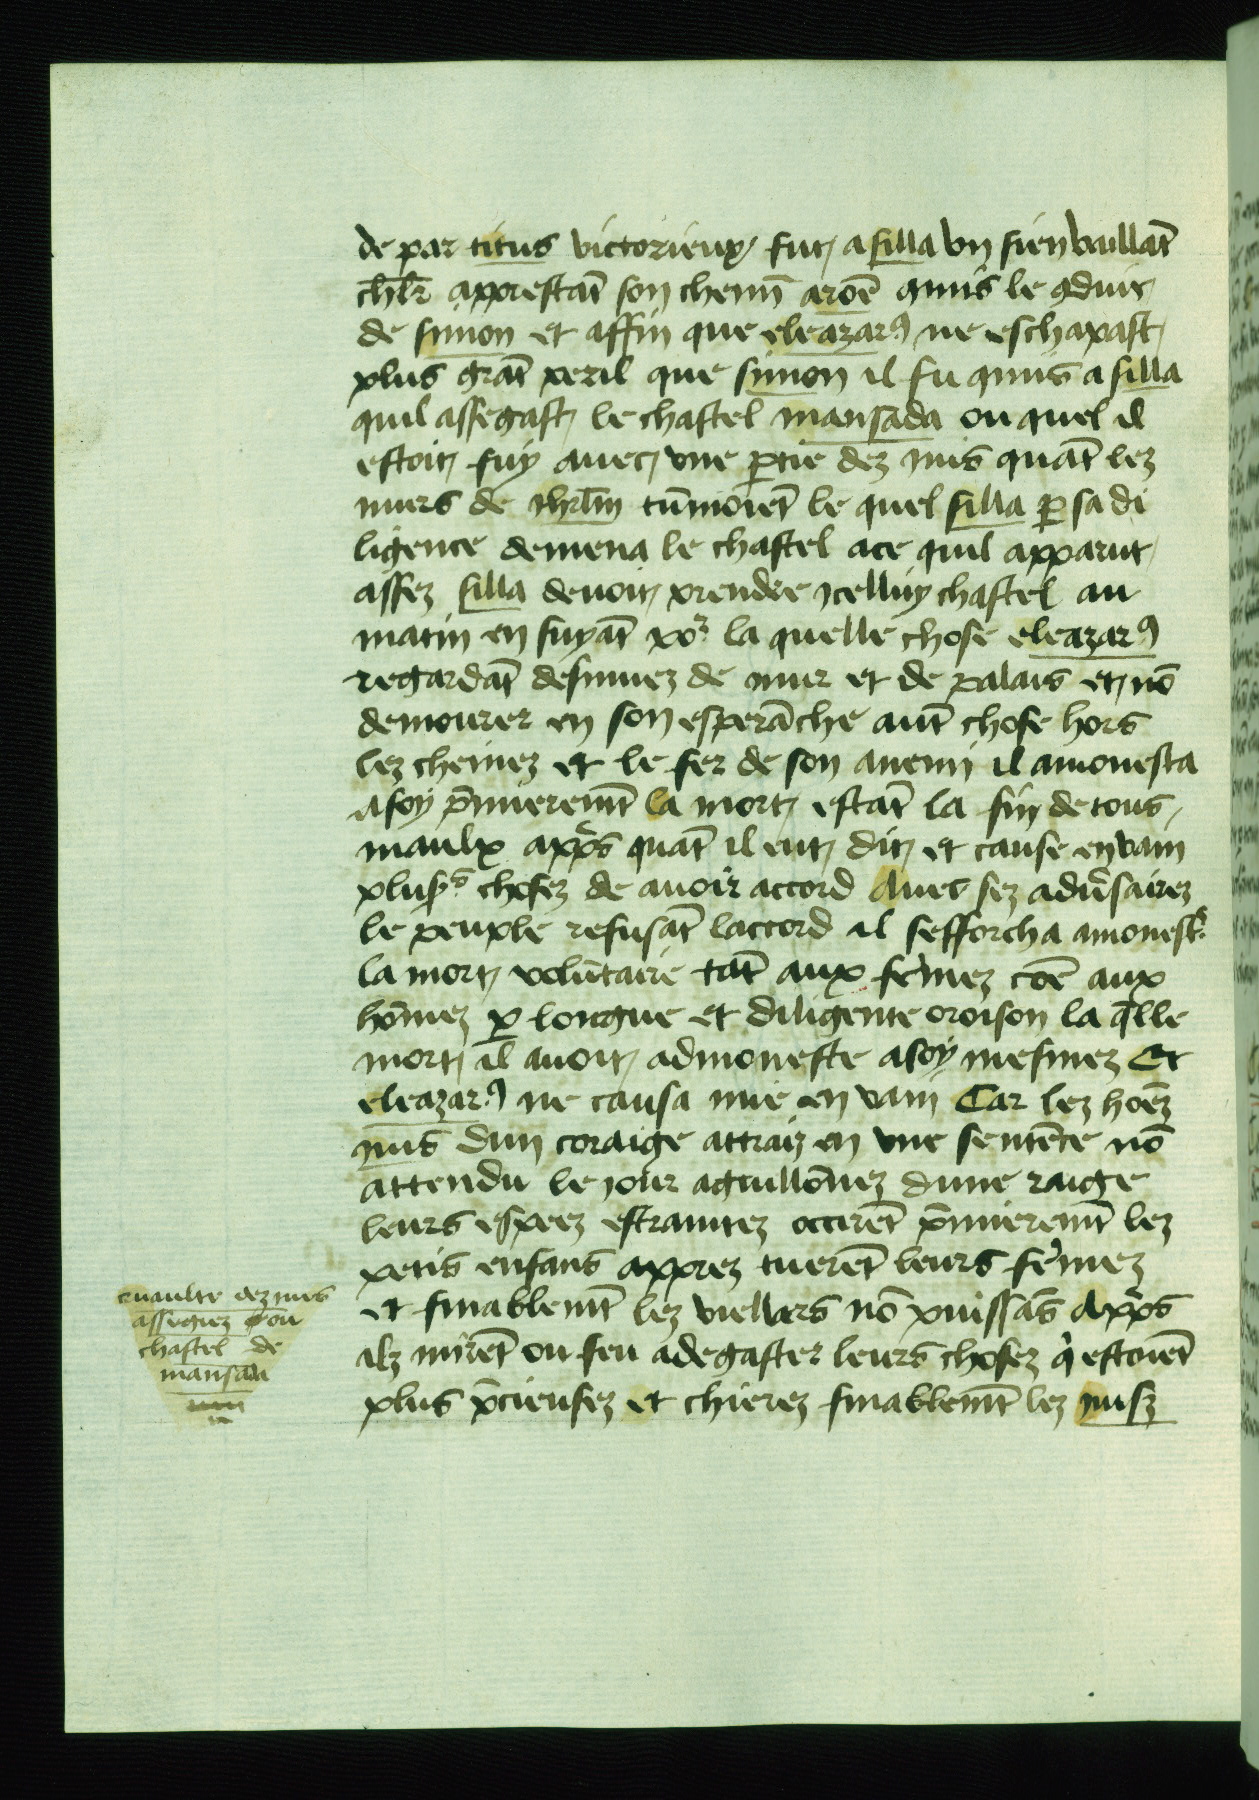 de par titus victorieux fut a silla un sien vaillāt
chl̄r apprestāt son chemī aroē qmis le 9duit
de simon et affin que eleazar9 ne eschapast
plus grāt peril que simon il fu qmis a silla
quil assegast le chastel mansada ou quel il
estoit fuy avec une ꝑtie dez iuis quāt lez
murs de ihrl̄m tūmoiēt le quel silla ꝑ sa di
ligence demena le chastel ace quil apparut
assez silla devoit prendre icelluy chastel au
matin en suyāt po2 la quelle chose eleazar9
regardāt desnuez de mur et de palais et nō
demourer en son esperāche aut̄ chose hors
lez cheinez et le fer de son anemi il amonesta
a soy p̄mieremt̄ la mort estāt la fin de tous
maulx app̄s quāt il eut dit et cause en vain
plus̄s chosez de avoir accord Avec sez adv̄sairez
le peuple refusāt laccord il sefforcha amonest2
la mort volūtaire tāt aux fēmez cōe aux
hōmez ꝑ longue et diligente oroison la q̄lle
mort il avoit admoneste a soy mesmez Et
eleazar9 ne causa mie en vain Car lez hōez
iuis dun coraige attraiz en une sentēce nō
attendu le jour aguillōnez dune raige
leurs espeez estraintez occirēt p̄mieremt̄ lez
petis enfans apprez tuerēt leurs fēmez
et finablemt̄ lez viellars nō puissās App̄s
ilz mirēt ou feu a degaster leurs chosez q̄ estoiēt
plus p̄cieusez et chierez finablemt̄ lez iuifz
cruaulte dez iuis
assiegiez ou
chastel de
mansada